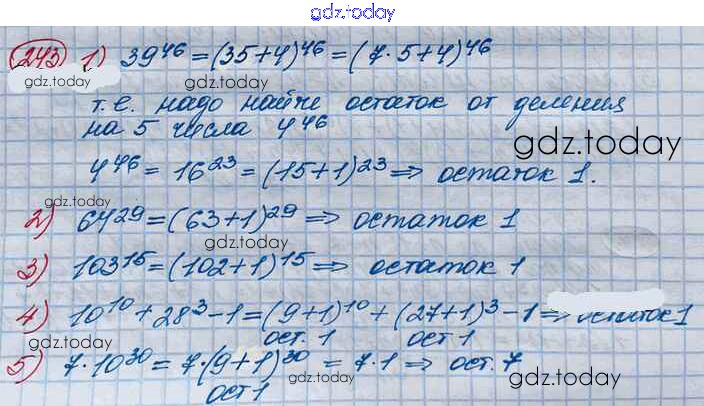 gdz.today
243 1) 39^46 = (35+4)^46 = (7·5+4)^46
gdz.today
т.е. надо найти остаток от деления
на 5 числа 4^46
gdz.today
4^46 = 16^23 = (15+1)^23 ⇒ остаток 1.
gdz.today
2) 64^29 = (63+1)^29 ⇒ остаток 1
gdz.today
3) 103^15 = (102+1)^15 ⇒ остаток 1
gdz.today
4) 10^10 + 28^3 - 1 = (9+1)^10 + (27+1)^3 - 1 ⇒ остаток 1
ост. 1 ост 1
gdz.today
5) 7·10^30 = 7·(9+1)^30 = 7·1 ⇒ ост. 7
ост 1
gdz.today
gdz.today